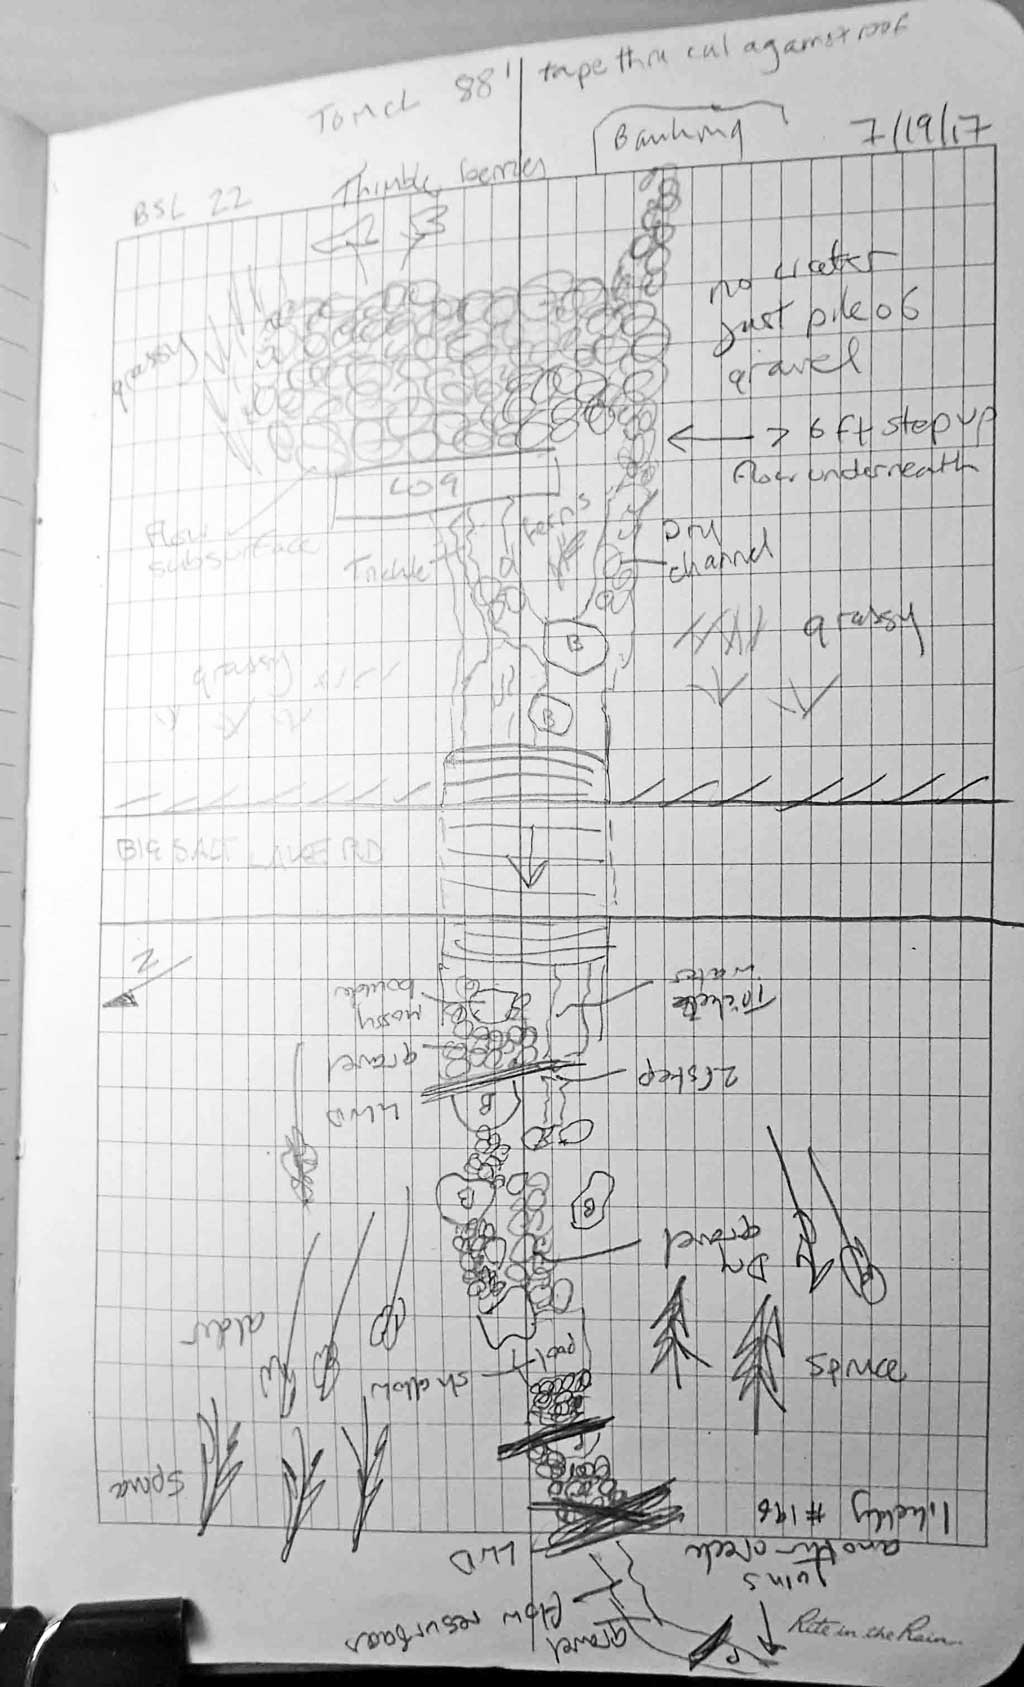 88' tape thru cul against roof
Banking
7/19/17
BSL 22
Thimble berries
no water
just pile of
gravel
grassy
> 6 ft step up
flow underneath
LOG
flow
subsurface
Trickle
ferns
Dry
channel
grassy
grassy
B
B
BIG SALT LAKE RD
N
mossy
boulder
Trickle
water
gravel
2 ft step
LWD
B
B
B
Dry
gravel
alder
shallow
pool
Spruce
Spruce
likely #196
another creek
joins
LWD
flow resurfaces
gravel
Rite in the Rain